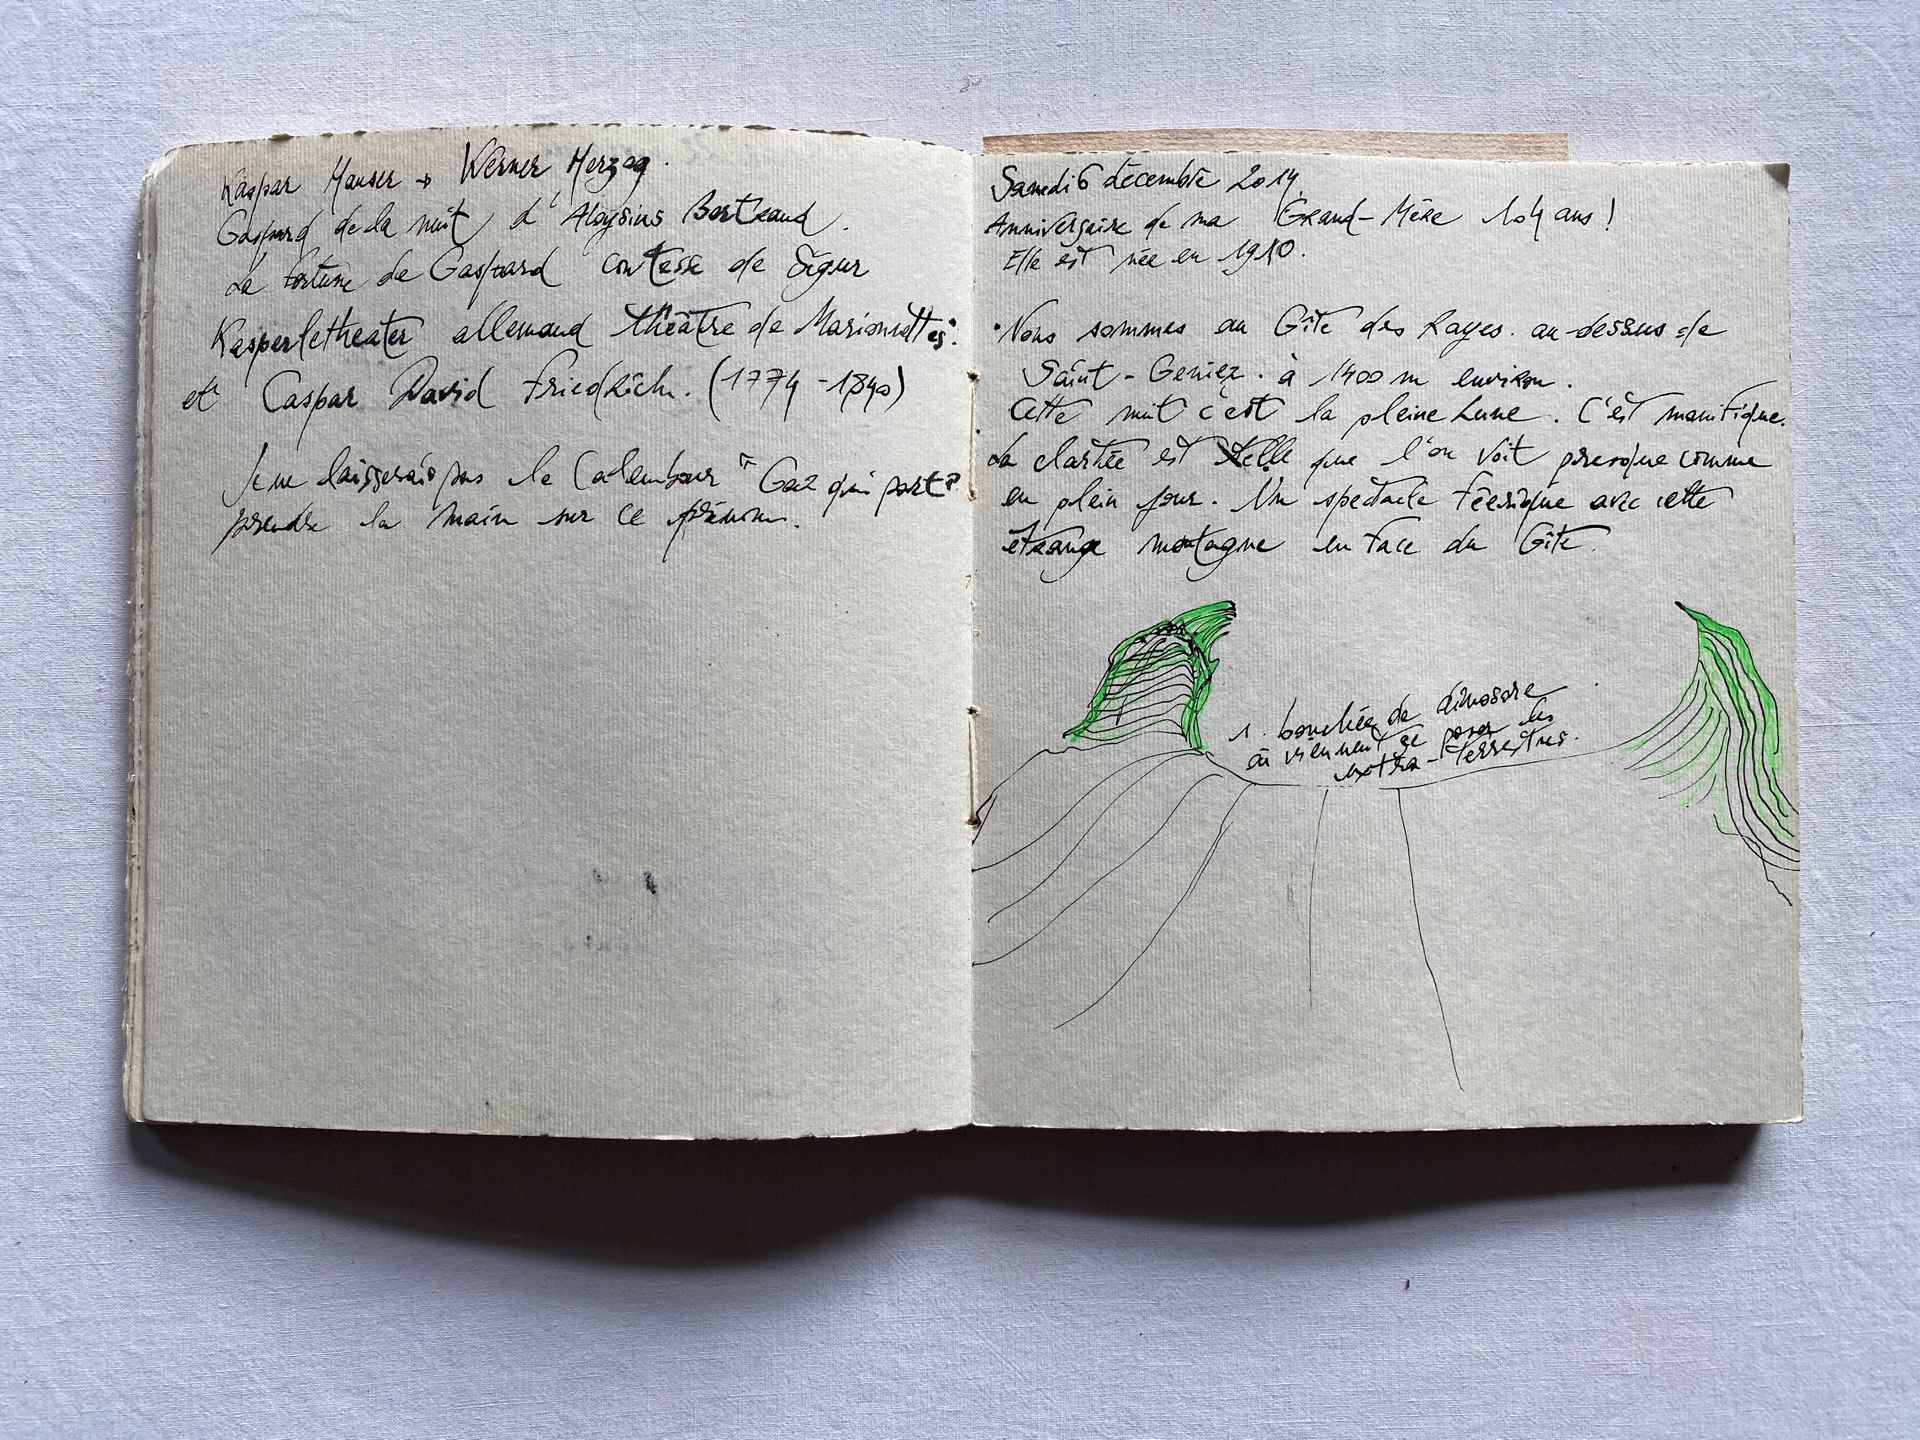 Kaspar Hauser → Werner Herzog.
Gaspard de la nuit d'Aloysius Bertrand.
La fortune de Gaspard contesse de Ségur
Kasperletheater allemand théâtre de Marionnettes.
et Caspar David Friedrich. (1774-1840)
Je ne laisserais pas le Calembour "Gaz qui part"
prendre la main sur ce prénom.
Samedi 6 décembre 2014.
Anniversaire de ma Grand-Mère 104 ans !
Elle est née en 1910.
Nous sommes au Gîte des Rayes. au-dessus-de
Saint-Geniez. à 1400 m environ.
Cette nuit c'est la pleine Lune. C'est manifique.
La clartée est telle que l'on voit presque comme
en plein jour. Un spectacle féerique avec cette
étrange montagne en face du Gîte.
1. bouchée de dinosore
où viennent se poser les
extra-terrestres.